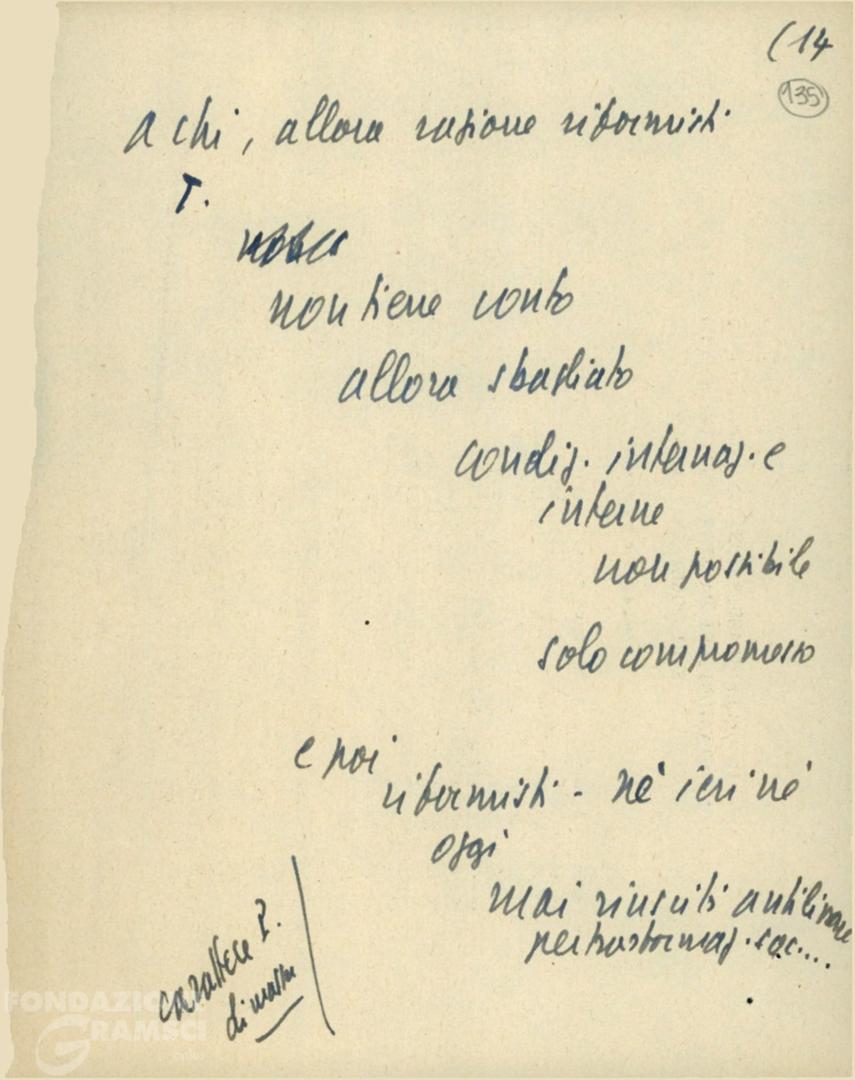 (14
135
a chi, allora ragione riformisti
T.
non tiene conto
allora sbagliato
condiz. internaz. e
interne
non possibile
solo compromesso
e poi
riformisti - né ieri né
oggi
mai riusciti
per trasformaz. soc....
carattere P.
di massa
FONDAZIONE
GRAMSCI